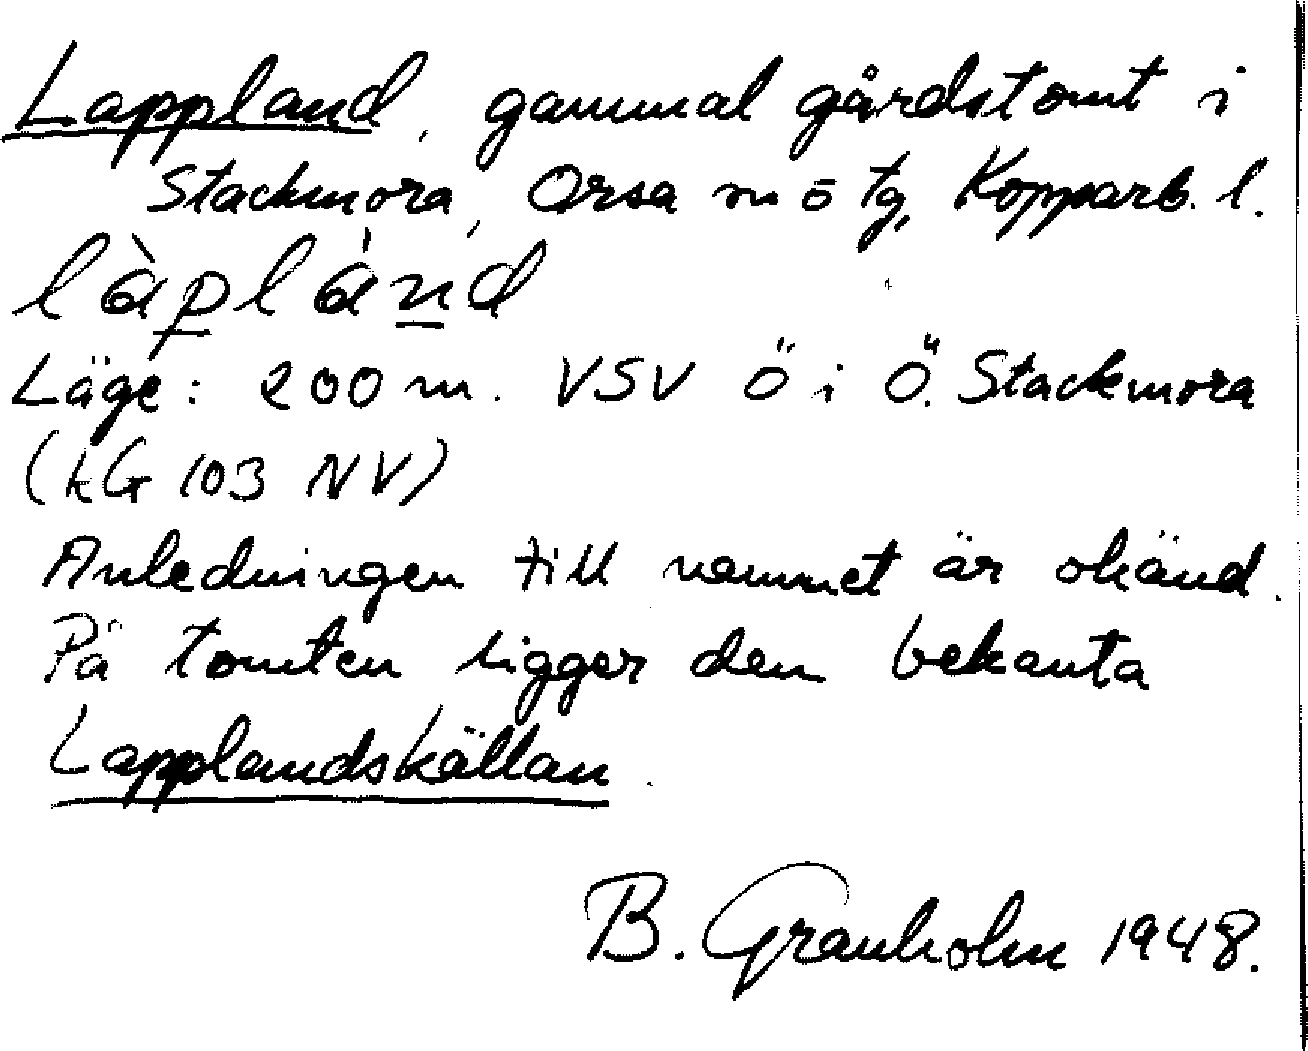 Lappland, gammal gårdstomt i
Stackmora, Orsa sn ö tg, Kopparb. l.
làplànd
Läge: 200 m. VSV Ö i Ö. Stackmora
(kG 103 NV)
Anledningen till namnet är okänd.
På tomten ligger den bekanta
Lapplandskällan.
B. Granholm 1948.